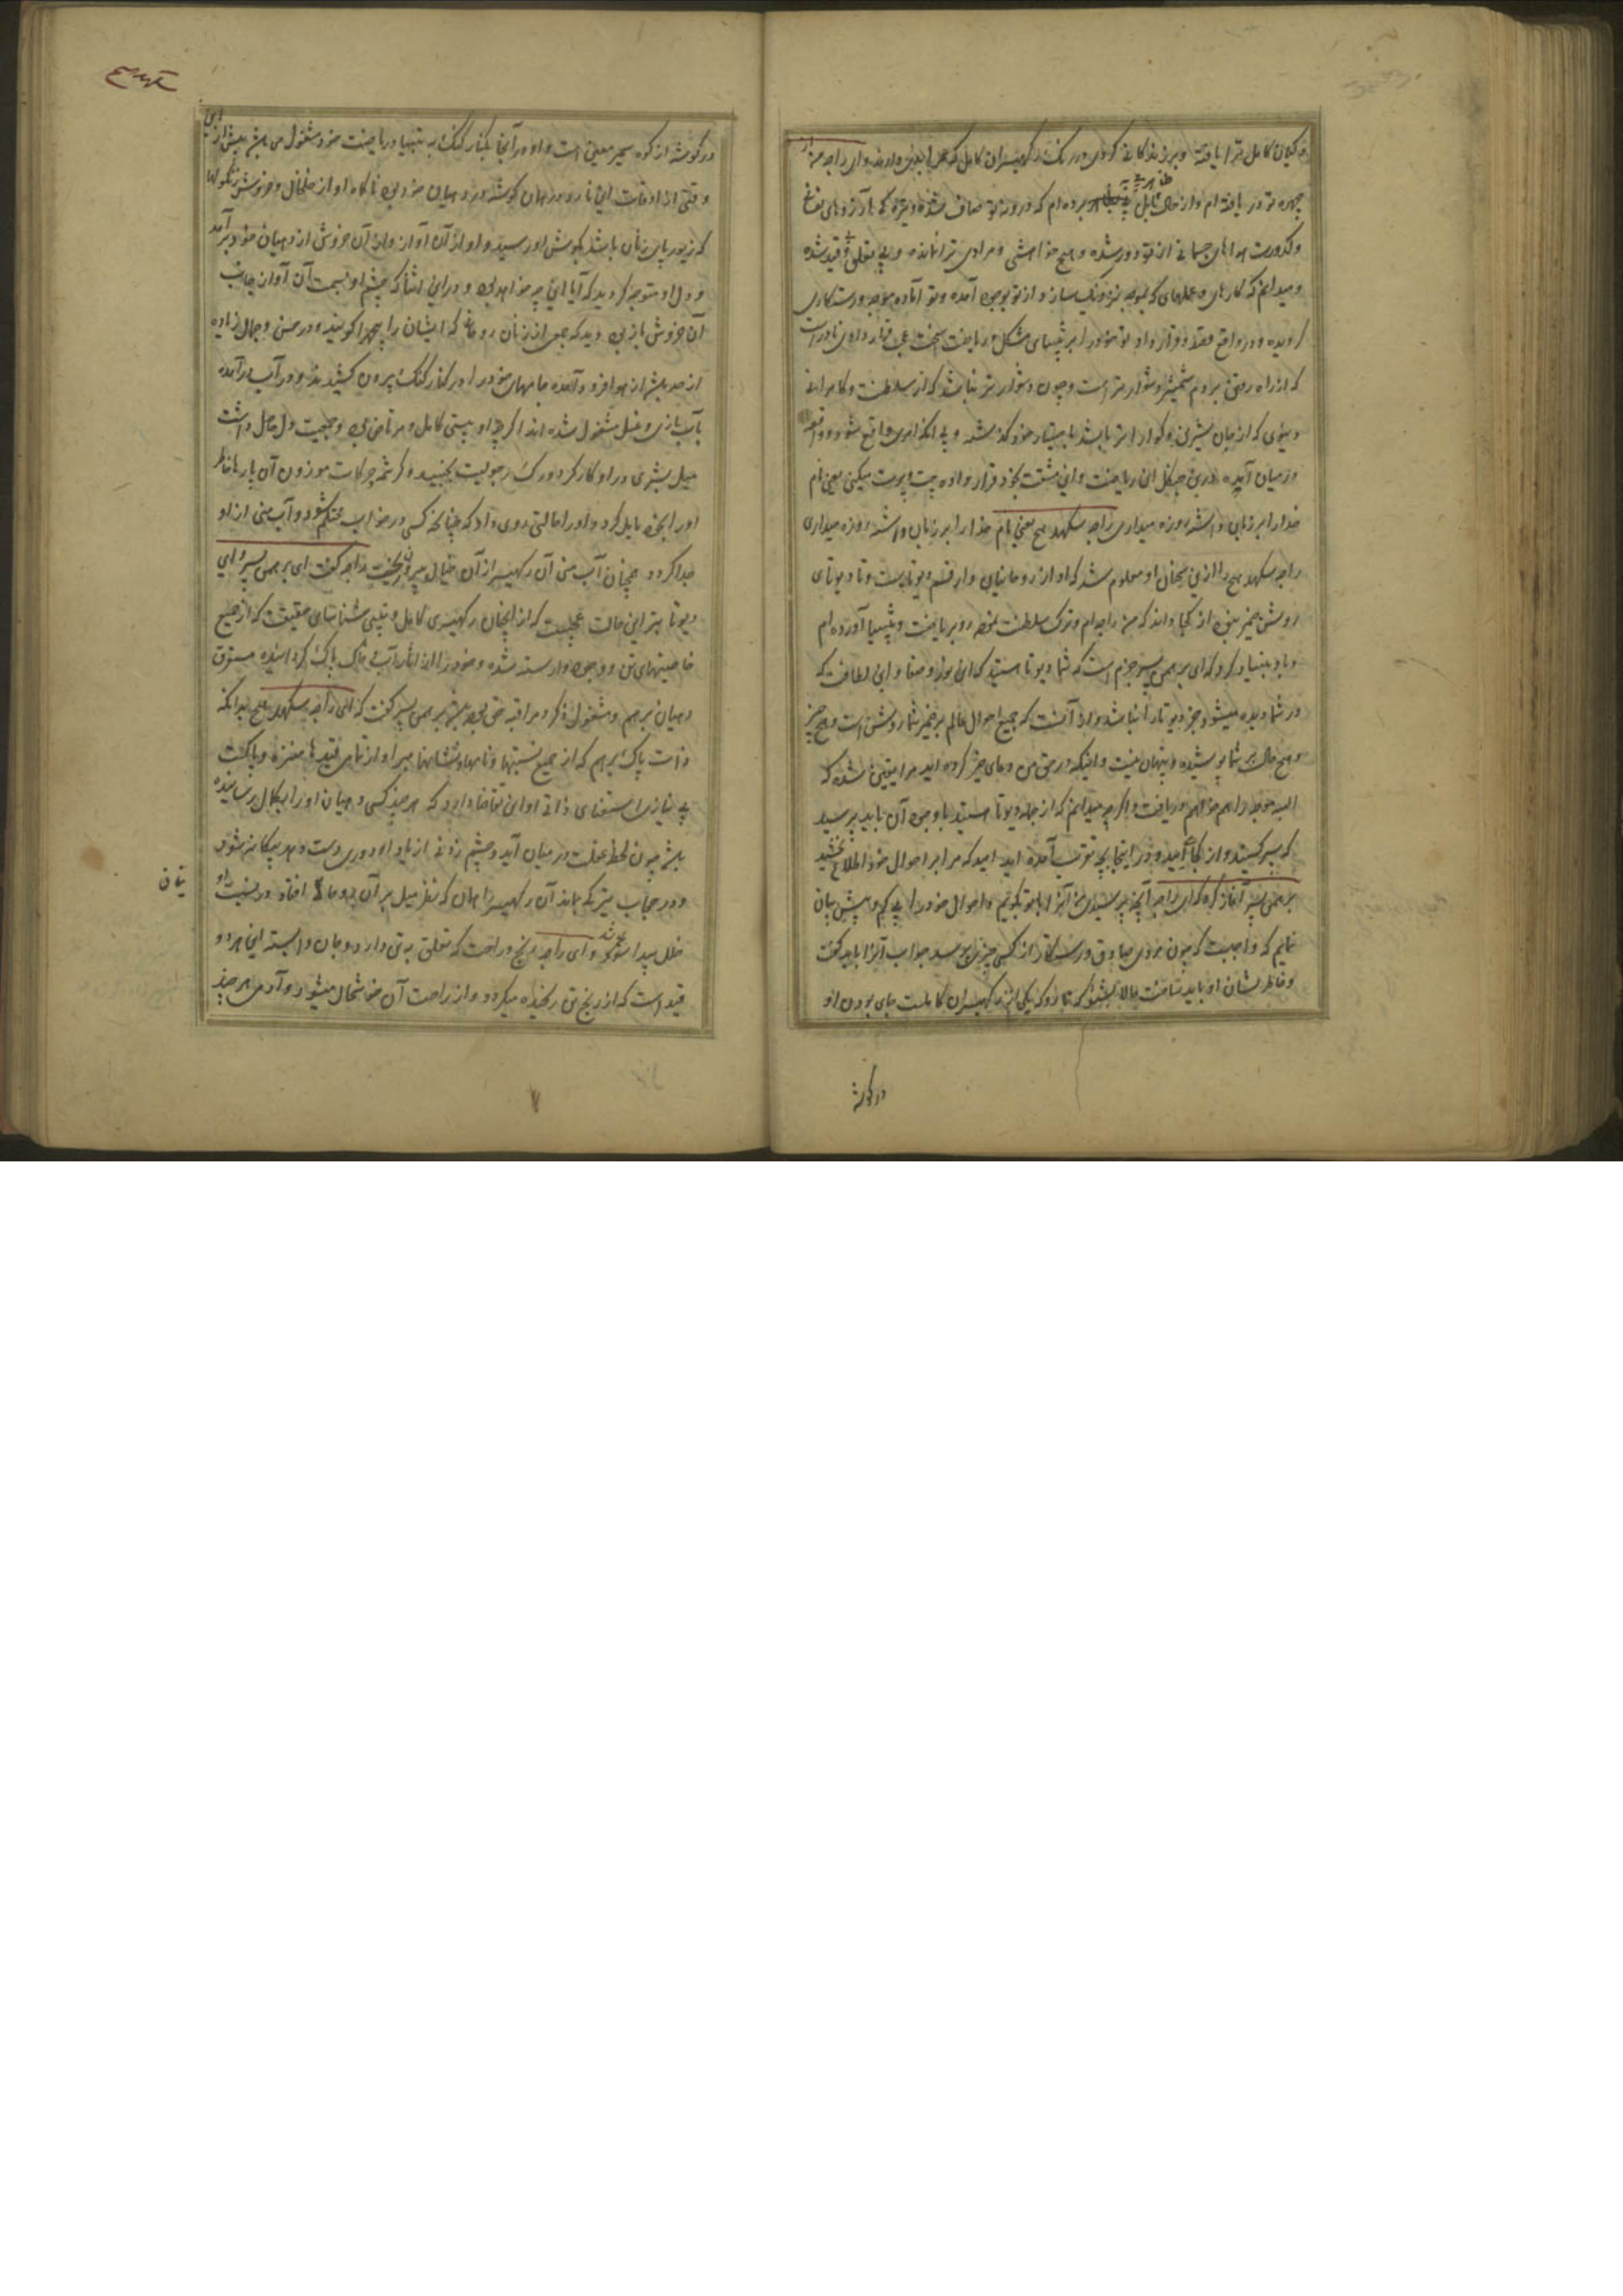 که کیان کامل ترا یافته و برزندکانی کردن در رنگ رکهیسران کامل که عمل ابدی دارند و ای راجه من از
چهره تو دریافته ام و از حال قابل پی برده ام که درونه تو صاف شده و تیره کیها و آرزوهای نفس
وکدورت هواهای جسمانی از تو دور شده و هیچ خواهشی و مرادی ترا نمانده و بی تعلق و قید شده
و میدانم که کارهای و عملهای که نتیجه نیک سازد از تو بوجود آمده و تو آماده موجب و رستکاری
کردیده و در واقع فقر و قرار داد تو خود را بر تپسیای مشکل و ریاضت سخت عجب قرار دادی نادر است
که از راه رفتن بر دم شمشیر دشوارتر است و چون دشوارتر نباشد که از سلطنت و کامرانی
دنیوی که از جان شیرین و کوارا تر باشد باختیار خود گذشته و بی آنکه امری واقع شود و واقعه
در میان آمده درین جنگل این ریاضت و این مشقت بخود قرار داده جپ و پرت میکنی یعنی نام
خدا را بر زبان داشته روزه میداری راجه سکهدهج یعنی نام خدا را بر زبان داشته روزه میداری
راجه سکهدهج را ازین سخنان او معلوم شد که او از روحانیان و از قسم دیوتاست و تا دیوتای
روشن ضمیر نبود از کجا داند که من راجه ام و ترک سلطنت نموده رو بریاضت و تپسیا آورده ام
و باو بنیاد کرد که ای برهمن پسر جزم است که شما دیوتا هستید که این نور و صفا و این لطافت که
در شما دیده میشود جز دیوتا را نباشد و از آنست که جمیع احوال عالم بر ضمیر شما روشن است و هیچ چیز
و هیچ حال بر شما پوشیده و پنهان نیست و اینکه در حق من دعای خیر کرده اید مرا یقین شده که
البته موجب را هم خواهم دریافت و اگرچه میدانم که از جمله دیوتا هستید با وجود آن باید پرسید
که پسر کیستید و از کجا آمدید و در اینجا بچه تقریب آمده اید امید که مرا بر احوال خود اطلاع بخشید
برهمن پسر آغاز کرد که ای راجه آنچه پرسیدی من آنرا با تو بگویم و احوال خود را بی کم و بیش بیان
نمایم که واجبست که چون مردی صادق و رستکار از کسی چیزی پرسد جواب آنرا باید گفت
و خاطر نشان او باید ساخت حالا بشنو که نارد که یکی از رکهیسران کاملست جای بودن او
در گوشه
سکهدهج
در گوشه از کوه سمیر معین است و او در آنجا بکنار گنگ به تپسیا و ریاضت خود مشغول می باشد پیش ازین
وقتی از اوقات این نارد در همان گوشه در دهیان خود بود ناگاه او از خلخال و خروش زنگولها
که زیور پای زنان باشد بگوش او رسید و او از آن آواز و از آن خروش از دهیان خود برآمد
و دل او متوجه گردید که آیا این چه خواهد بود و در این اثنا که چشم او بسمت آن آواز و جانب
آن خروش باز بود دید که جمعی از زنان روحانی که ایشان را اپچهرا گویند و در حسن و جمال زیاده
از حد بشر از هوا فرود آمده جامهای خود را در کنار گنگ بیرون کشیدند و در آب درآمده
بآب بازی و غسل مشغول شده اند اگرچه او تپسی کامل و مرتاض بود و جمعیت دل حاصل داشت
میل بشری در او کار کرد و رگ رجولیت بجنبید و کرشمه و حرکات موزون آن پارها خاطر
او را بخود مایل کرد و او را حالتی روی داد که چنانکه کسی در خواب محتلم شود و آب منی از او
جدا گردد همچنان آب منی آن رکهیسر از آن خیال بیرون ریخت راجه گفت ای برهمن پسر و ای
دیوتا بتر این حالت عجبست که از اینچنان رکهیسری کامل و تپسی شناسای حقیقت که از جمیع
خاصیتهای تن و وجود وارسته شده و خود را از آثار آب و خاک پاک گردانیده مستغرق
دهیان برهم و مشغول ذکر و مراقبه حق بود برهمن پسر گفت که ای راجه سکهدهج بدانکه
ذات پاک برهم که از جمیع نسبتها و نامها و نشانها مبرا و از تمامی قیدها منزه و پاکست
بی نیازی و استغنای ذاتی او این تقاضا دارد که هر چند کسی دهیان او را بکمال رسانیده
باشد چون لحظه غفلت در میان آید و چشم زدنی از یاد او دوری دست دهد بیگانه شود
و در حجاب تیرگی ماند آن رکهیسر را همان که نظر میل بر آن افتاد در نسبت او
خلل پیدا شد و ای راجه رنج و راحت که تعلق به تن دارد و جان وابسته این هر دو
قید است که از رنج تن رنجیده میگردد و از راحت آن خوشحال میشود و آدمی هر چند